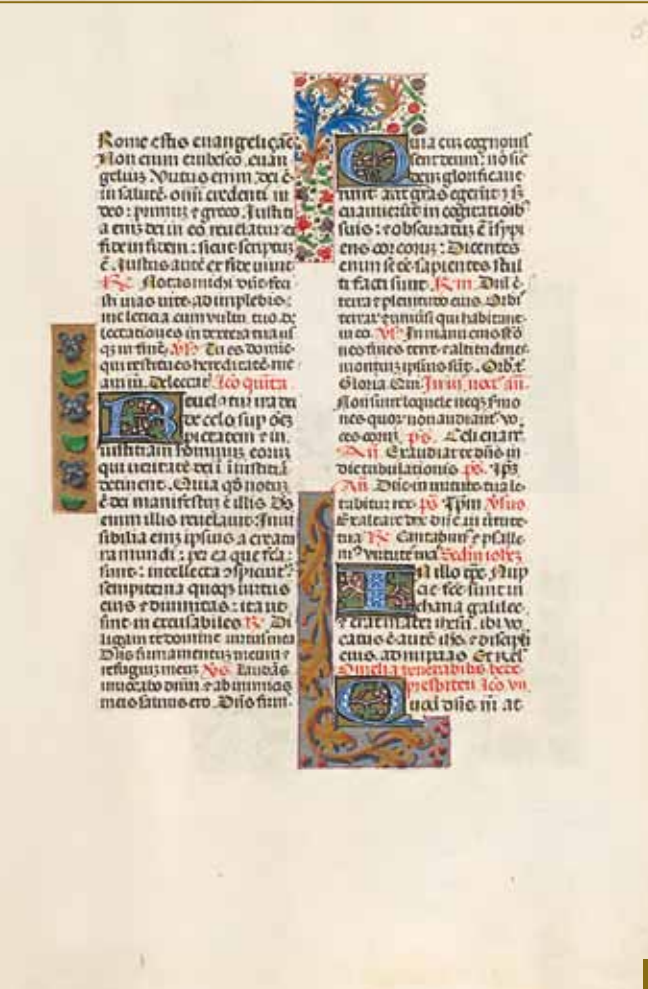 Rome estis euangelicãe
Non enim erubesco euan
geliuȝ Virtus enim dei ẽ
in salutẽ omni credenti iu
deo : primuȝ ⁊ greco. Justiti
a eniȝ dei in eo reuelatur ex
fide in fidem : sicut scriptuȝ
ẽ. Justus autẽ ex fide uiuit
Notas michi
leticia cum vultu tuo. de
lectationes in dextera tua us
qȝ in finẽ. Tu es domine
qui restitues hereditatẽ me
am
Reuelatur ira dei
de celo sup oẽs
pietatem ⁊ in
iustitiam hominuȝ eoruȝ
qui ueritatẽ dei ĩ iniustitia
detinent. Quia qđ notuȝ
ẽ dei manifestuȝ ẽ illis. Ds̃
enim illis reuelauit. Inui
sibilia eniȝ ipsius a creatu
ra mundi : per ea que fc̃a
sunt : intellecta
sempiterna quoqȝ uirtus
eius ⁊ diuinitas : ita ut
sint in excusabiles Di
ligam te domine uirtus mea
Dñs firmamentuȝ meum ⁊
refugiuȝ meuȝ Laudãs
inuocabo dñm ⁊ ab inimicis
meis saluus ero. Dñs firm
Quia cuȝ cognouis
sent deum : nõ sic
deuȝ glorificaue
runt aut gr̃as egerũt ⁊ sȝ
euanuerũt in cogitationibȝ
suis : ⁊ obscuratuȝ ẽ insipi
ens cor eoruȝ : Dicentes
enim se eẽ sapientes stul
ti facti sunt. Dñi ẽ
terra ⁊ plenitudo eius. Orbis
terrarȝ ⁊ uniuersi qui habitant
in eo. In manu eius sũt
nes fines terre. ⁊ altitudines
montiuȝ ipsius sũt. Orb
Gloria
Non sunt loquele neqȝ sermo
nes quorȝ non audiantʳ vo
ces eorȝ ps. Celi enarr.
Añ Exaudiat te dñs in
die tribulationis ps. Ips̃
Añ. Dñe in uirtute tua le
tabitur rex ps Ip̃m
Exaltare dñe in uirtute
tua Cantabimʳ ⁊ psalle
mʳ uirtutes tuas
In illo tp̃e. Nup
cie fc̃e sunt in
chana galilee.
⁊ erat mater ihesu. ibi vo
catus ẽ autẽ ihs̃ ⁊ discipli
eius. ad nuptias Et rel
Omelia venerabilis bede
presbiteri
Quod dñs